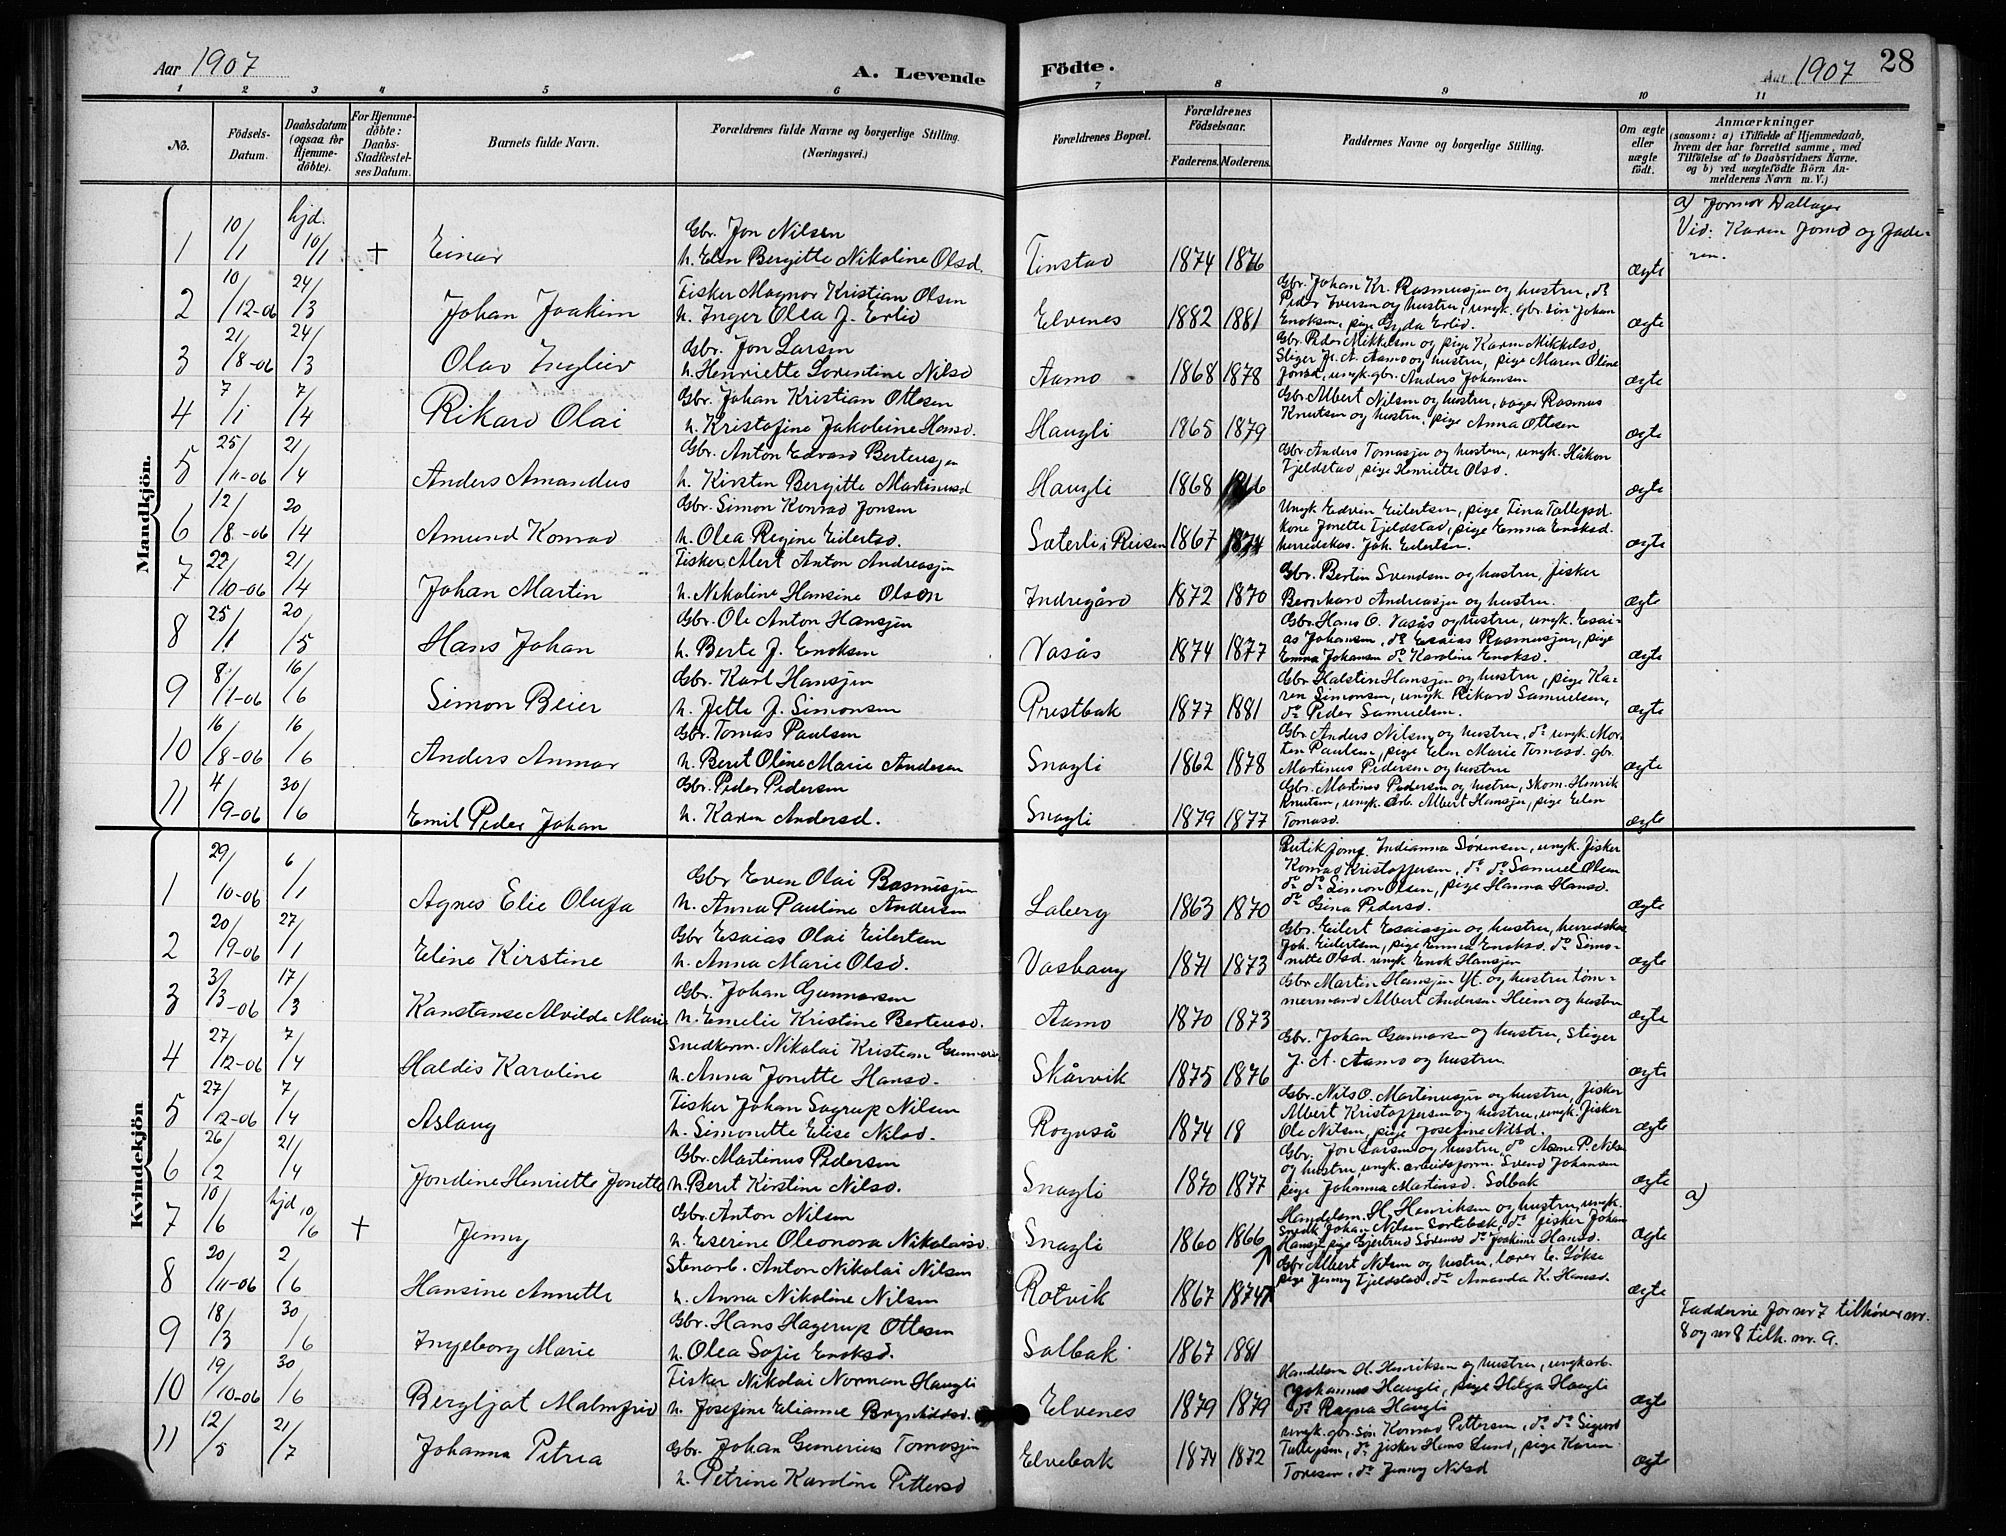 Aar 1907
A. Levende
Födte.
Aar 1907
28
1 2 3 4 5 6 7 8 9 10 11
No.
Födsels-Datum.
Daabsdatum (ogsaa for Hjemme-döbte).
For Hjemme-döbte: Daabs-Stadfæstel-ses Datum.
Barnets fulde Navn.
Forældrenes fulde Navne og borgerlige Stilling.
(Næringsvei.)
Forældrenes Bopæl.
Forældrenes Födselsaar.
Faderens. Moderens.
Faddernes Navne og borgerlige Stilling.
Om ægte eller uægte födt.
Anmærkninger
(saasom: a) i Tilfælde af Hjemmedaab,
hvem der har forrettet samme, med
Tilföielse af to Daabsvidners Navne.
og b) ved uægtefödte Börn An-
melderens Navn m. V.)
Mandkjön.
1 10/1 hjd. 10/1 + Einar
Gbr. Jon Nilsen
h. Elen Bergitte Nikoline Olsd.
Tinstad 1874 1876 ægte
a) Jormor
Vid: Karen Jonsd og Fade-
ren.
2 10/12-06 24/3 Johan Joakim
Fisker Magnor Kristian Olsen
h. Inger Olea J. Erlid
Elvenes 1882 1881
Gbr. Johan Kr. Rasmussen og hustru, do
Peder Iversen og hustru, ungk. gbr. søn Johan
Enoksen, pige Gyda Erlid. ægte
3 21/8-06 24/3 Olav
Gbr. Jon Larsen
h. Henriette Lorentine Nilsd
Aamo 1868 1878
Gbr. Peder Mikkelsen og pige Karen Mikkelsd,
Stiger J. A. Aamo og hustru, pige Maren Oline
Jonsd, ungk. gbr. Anders Johansen ægte
4 7/1 7/4 Rikard Olai
Gbr. Johan Kristian Ottesen
h. Kristofine Jakobine Hansd.
Haugli 1865 1879
Gbr Albert Nilsen og hustru, Rasmus
Knutsen og hustru, pige Anna Ottesen ægte
5 25/11-06 21/4 Anders Amandus
Gbr. Anton Edvard Berteussen
h. Kirsten Bergitte Martinusd
Haugli 1868
Gbr Anders Tomassen og hustru, ungk. Håkon
Fjeldstad, pige Henriette Olsd. ægte
6 12/8-06 20/4 Amund Konrad
Gbr. Simon Konrad Jonsen
h. Olea Regine Eilertsd.
Sæterli i Reisen 1867 1874
Ungk Edvin Eilertsen, pige Tina Tollefsd.
kone Jonette Fjeldstad, pige Emma Enoksd.
herredskas. Joh. Eilertsen. ægte
7 22/10-06 21/4 Johan Martin
Fisker Alert Anton Andreassen
h. Nikoline Hansine Olsen
Indregård 1872 1870
Gbr. Bertin Svendsen og hustru, fisker
Bernhard Andreassen og hustru. ægte
8 25/1 20/5 Hans Johan
Gbr. Ole Anton Hanssen
h. Berte J. Enoksen
Vasås 1874 1877
Gbr. Hans O. Vasås og hustru, ungk. Esai-
as Johansen, do Esaias Rasmussen, pige
Emma Johansen do Karoline Enoksd. ægte
9 8/1-06 16/6 Simon Beier
Gbr. Karl Hanssen
h. Jette J. Simonsen
Prestbak 1877 1881
Gbr Halsten Hanssen og hustru, pige Ka-
ren Simonsen, ungk. Rikard Samuelsen,
do Peder Samuelsen. ægte
10 16/8-06 16/6 Anders Annar
Gbr. Tomas Paulsen
h. Berit Oline Marie Andersen
Snagli 1862 1878
Gbr. Anders Nilsen og hustru, do ungk. Mor-
ten Paulsen, pige Elen Marie Tomasd. gbr.
Martinus Pedersen og hustru ægte
11 4/9-06 30/6 Emil Peder Johan
Gbr. Peder Pedersen
h. Karen Andersd.
Snagli 1879 1877
Gbr. Martinus Pedersen og hustru, skom. Henrik
Knutsen, ungk. arb. Albert Hanssen, pige Elen
Tomasd. ægte
Kvindekjön
1 29/10-06 6/1 Agnes Elie Olufa
Gbr Even Olai Rasmussen
h. Anna Pauline Andersen
Laberg 1863 1870
Butikjomf. Indianna Sørensen, ungk. fisker
Konrad Kristoffersen, do do Samuel Olsen
do do Simon Olsen, pige Hanna Hansd.
do Gina Pedersd. ægte
2 20/9-06 27/1 Eline Kirstine
Gbr Esaias Olai Eilertsen
h. Anna Marie Olsd.
Vashaug 1871 1873
Gbr. Eilert Esaiassen og hustru, herredskas
Joh. Eilertsen, pige Emma Enoksd. do Simo-
nette Olsd. ungk Enok Hanssen ægte
3 3/3-06 17/3 Kanstanse Alvilde Marie
Gbr. Johan Gunnarsen
h. Emelie Kristine Berteusd.
Aamo 1870 1873
Gbr Martin Hanssen Yt. og hustru tøm-
mermand Albert Andersen Heim og hustru ægte
4 27/12-06 7/4 Haldis Karoline
Snedkerm. Nikolai Kristian
h. Anna Jonette Hansd.
Skårvik 1875 1876
Gbr. Johan Gunnarsen og hustru, Stiger
J. A. Aamo og hustru ægte
5 27/12-06 7/4 Aslaug
Fisker Johan Nilsen
h. Simonette Elise Nilsd.
Rognså 1874 18
Gbr. Nils O. Martinussen og hustru, fisker
Albert Kristoffersen og hustru, ungk. fisker
Ole Nilsen, pige Josefine Nilsd. ægte
6 26/2 21/4 Jondine Henriette Jonette
Gbr. Martinus Pedersen
h. Berit Kirstine Nilsd.
Snagli 1870 1877
Gbr. Jon Larsen og hustru, do P. Nilsen
og hustru, ungk. arbeidsform. Svend Johansen
pige Johanna Martinsd. Solbak ægte
7 10/6 hjd 10/6 + Jenny
Gbr. Anton Nilsen
h. Eserine Oleonora Nikolaisd.
Snagli 1860 1866
Handelsm. H. Henriksen og hustru, ungk.
Snedk Johan Nilsen Sortebak, do fisker Johan
Hanss pige Gjertrud Sørensd do Joakime Hansd. ægte
a)
8 20/11-06 2/6 Hansine Annette
Stenarb. Anton Nikolai Nilsen
h. Anna Nikoline Nilsen
Rotvik 1867 1874
Gbr Albert Nilsen og hustru, lærer E. Løkse
pige Jenny Fjeldstad, do Amanda K. Hansd. ægte
9 18/3 30/6 Ingeborg Marie
Gbr. Hans Hagerup Ottesen
h. Olea Sofie Enoksd.
Solbak 1867 1881
Fadderne for nr 7 tilhører nr.
8 og nr 8 tilh. nr. 9.
10 19/10-06 30/6 Bergljot Malmfrid
Fisker Nikolai Norman Haugli
h. Josefine Elianne
Elvenes 1879 1879
Handelsm H. Henriksen og hustru, ungkarb.
Johannes Haugli, pige Helga Haugli
do Ragna Haugli ægte
11 12/5 21/7 Johanna Petrea
Gbr. Johan Gunerius Tomassen
h. Petrine Karoline Pettersd
Elvebak 1874 1872
ungk. gbr. søn Konrad Pettersen, do do Sigurd
Tollefsen, do fisker Hans Lund, pige Karen
Toresen, do Jenny Nilsd ægte